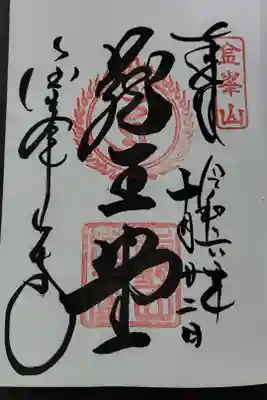 金峯山
奉拝
令和六年
十月廿二日
蔵王堂
金峯山寺